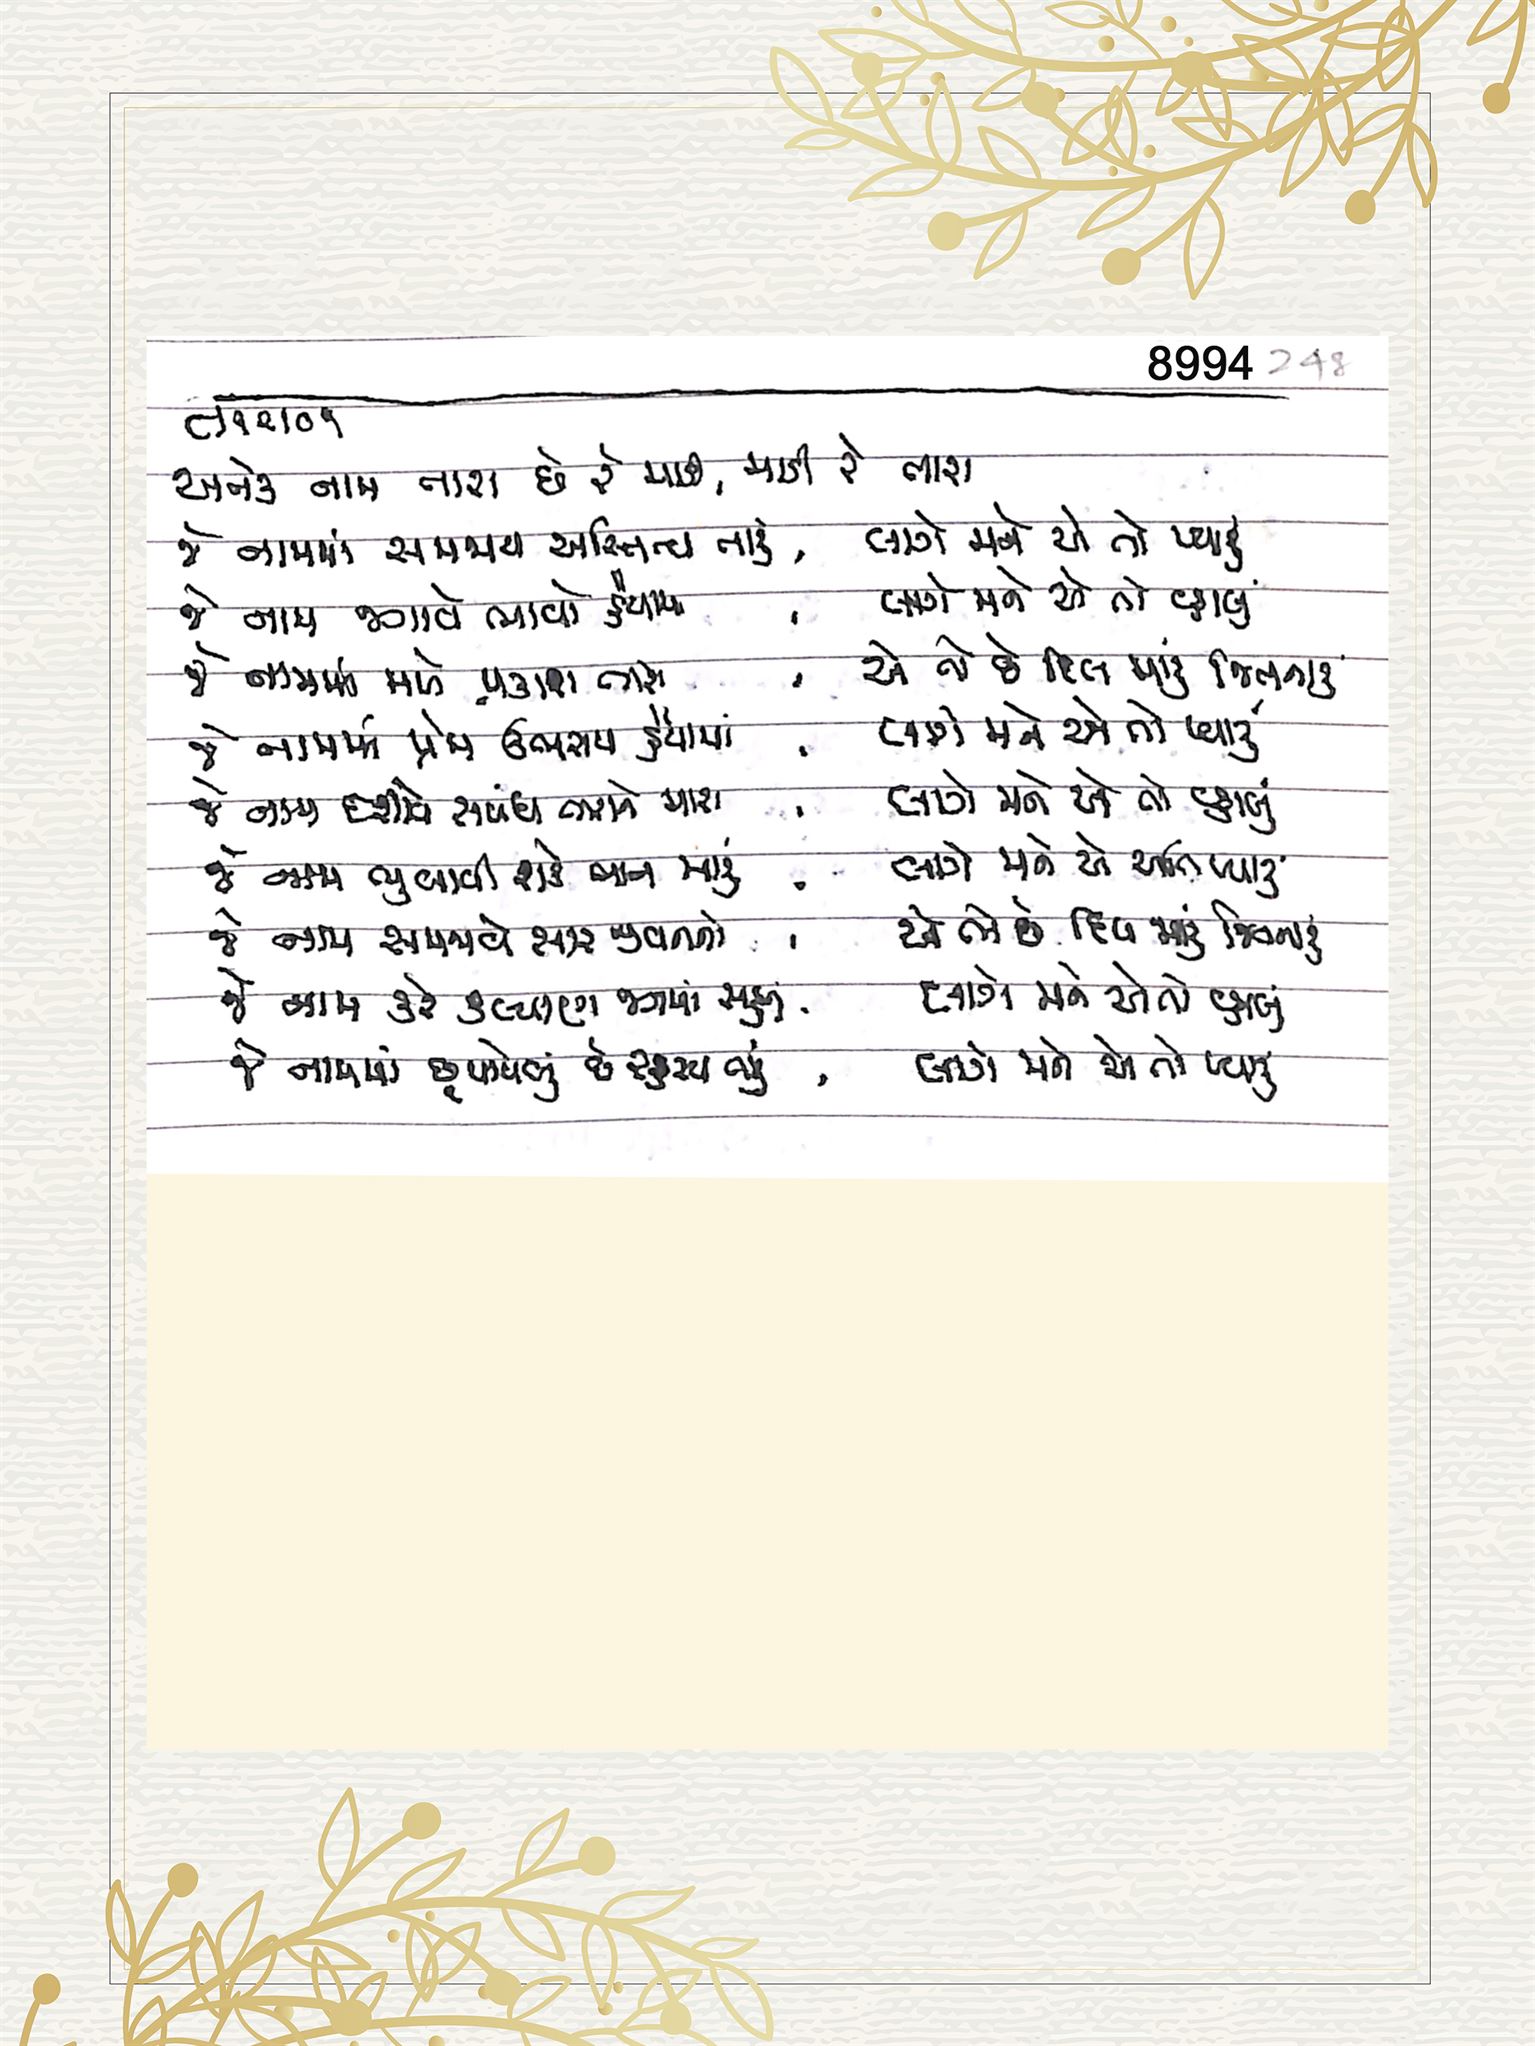 8994 248
અનેક નામ તારા છે રે માડી, માડી રે તારા
જે નામમાં સમજાય અસ્તિત્વ તારું, લાગે મને એ તો પ્યારું
જે નામ જગાવે ભાવો હૈયામાં, લાગે મને એ તો વ્હાલું
જે નામમાં મળે પ્રકાશ તારો, એ તો છે દિલ મારું જિતનારું
જે નામમાં પ્રેમ ઉભરાય હૈયામાં, લાગે મને એ તો પ્યારું
જે નામ દર્શાવે સબંધ તારોને મારા, લાગે મને એ તો વ્હાલું
જે નામ ભુલાવી શકે ભાન મારું, લાગે મને એ અતિ પ્યારું
જે નામ સમજાવે સાર જીવનનો, એ તો છે દિલ મારું જિતનારું
જે નામ કરે કલ્યાણ જગમાં સહુનું, લાગે મને એ તો વ્હાલું
જે નામમાં છૂપાયેલું છે સુખ, લાગે મને એ તો પ્યારું